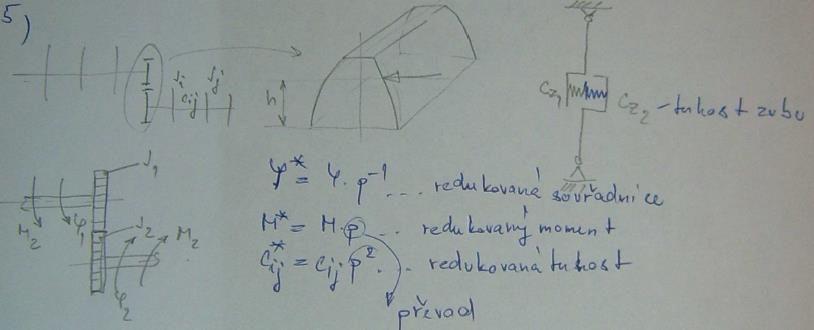 5)
J_i
J_j
c_ij
h
c_z1
c_z2 - tuhost zubu
J_1
M_2
φ_1
J_2
M_2
φ_2
φ* = φ · p^-1 ... redukovaná souřadnice
M* = M · p ... redukovaný moment
c_ij* = c_ij p^2 ... redukovaná tuhost
převod